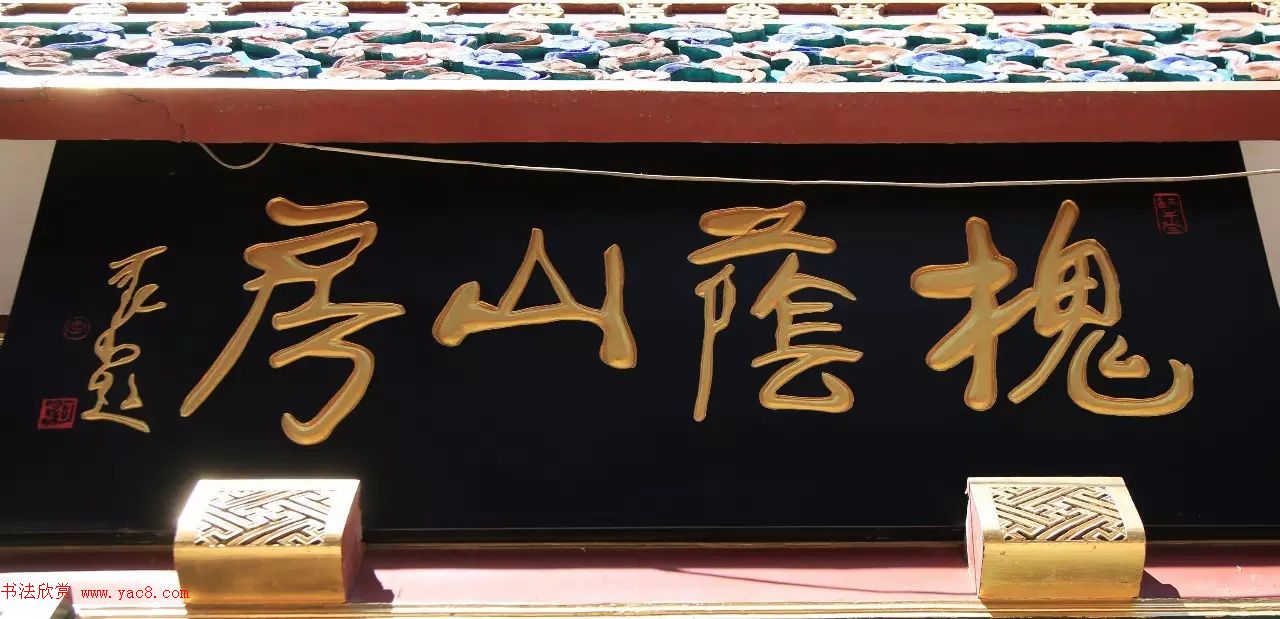 槐蔭山房
书法欣赏 www.yac8.com